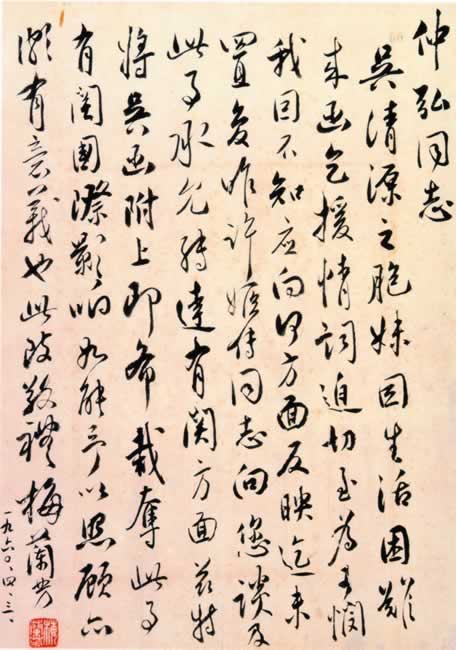 仲弘同志
吴清源之胞妹因生活困难
来函乞援情词迫切至为可悯
我因不知应向何方面反映迄未
置复昨许姬传同志向您谈及
此事承允转达有関方面兹特
将吴函附上即希裁夺此事
有関國際影响如能予以照顾亦
颇有意义也此致敬礼梅蘭芳
一九六〇、四、三、